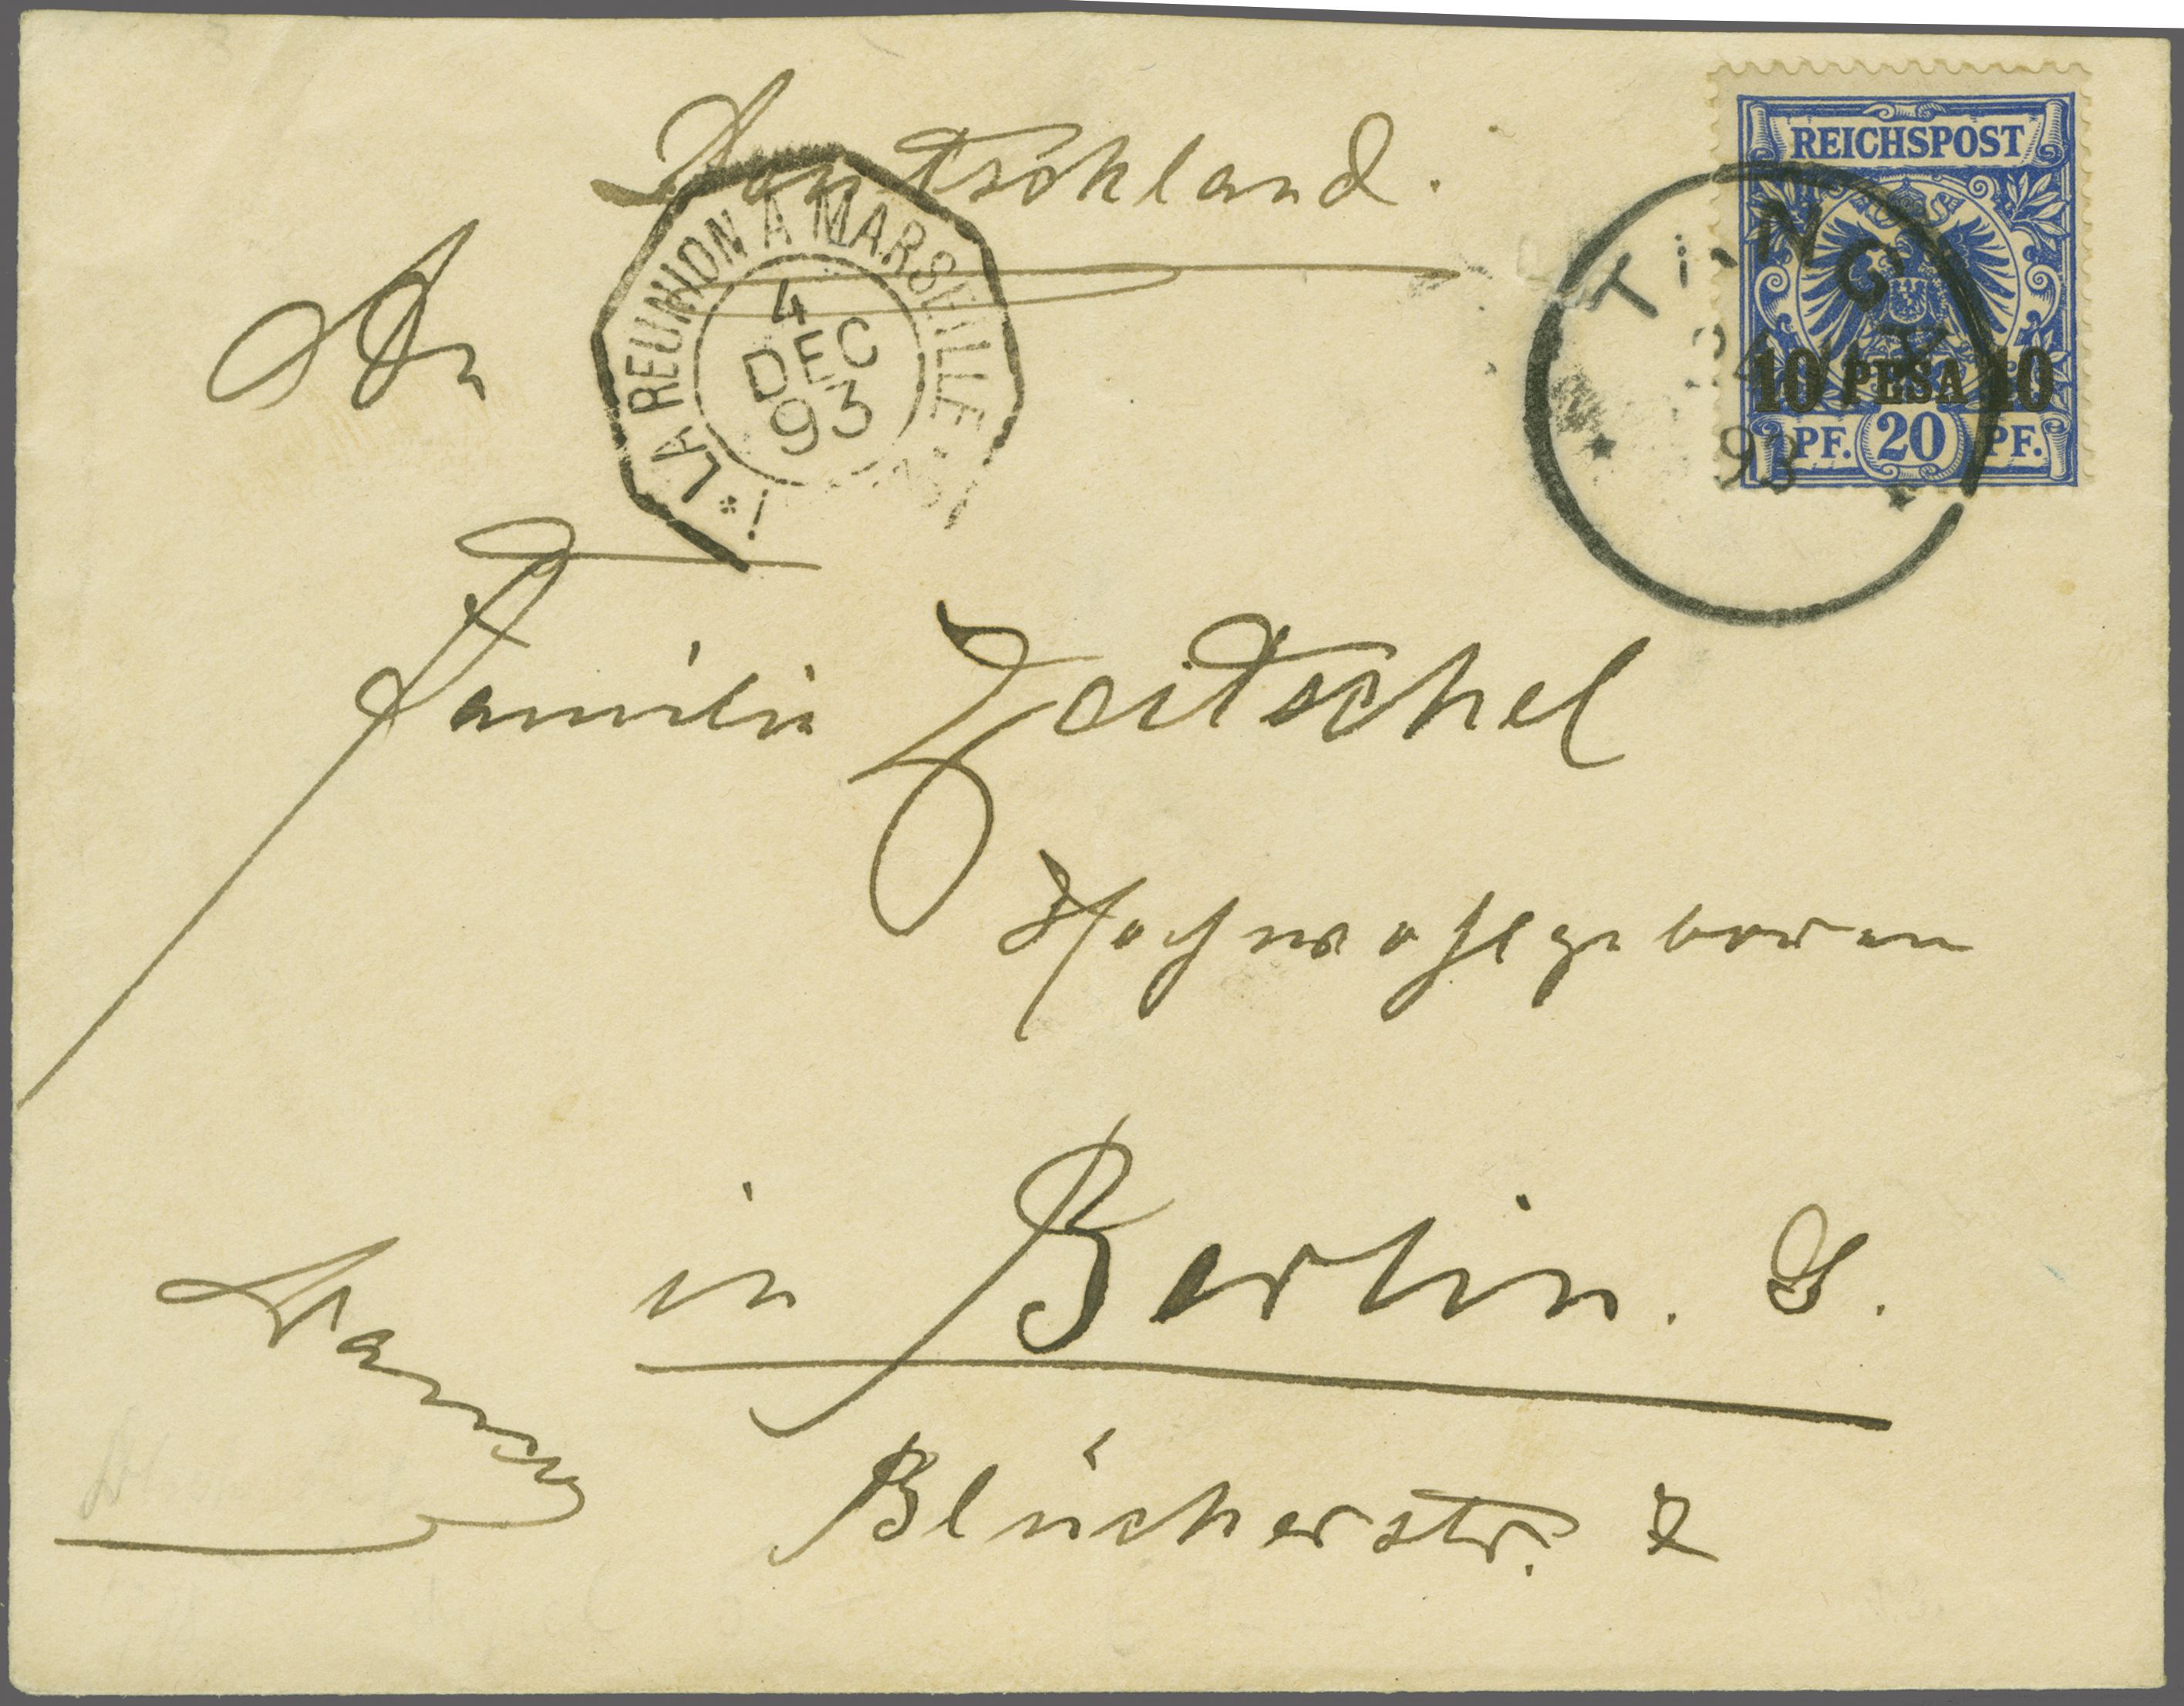 Deutschland.
REICHSPOST
10 PESA 10
PF. 20 PF.
93
LA REUNION A MARSEILLE
4
DEC
93
An
Familie Zeitschel
Hochwohlgeboren
in Berlin. S.
Blücherstr. 7